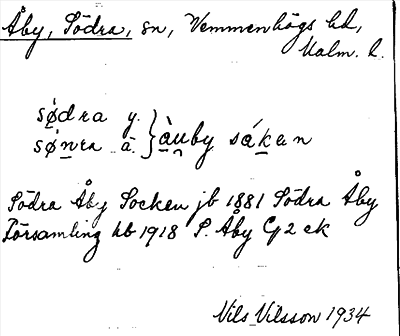 Åby, Södra, sn, Vemmenhögs hd,
Malm. l.
sødra y.
sønra ä. } àu̯by sákan
Södra Åby Socken jb 1881 Södra Åby
Församling hb 1918 S. Åby G2 ek
Nils Nilsson 1934